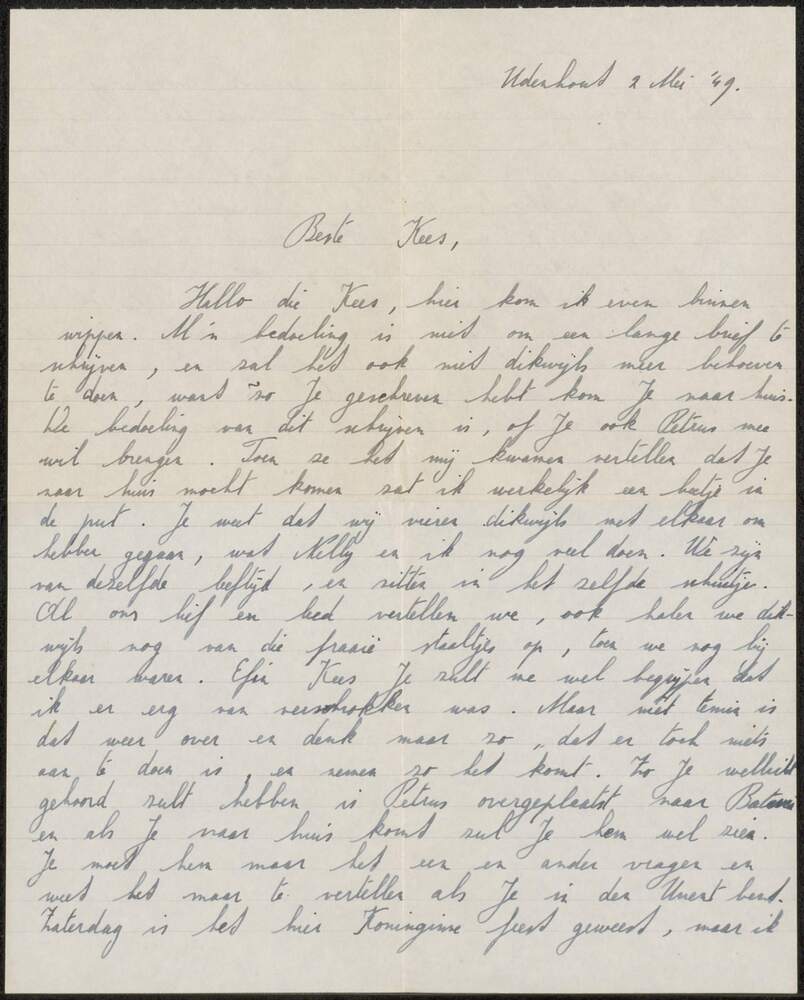 Udenhout 2 Mei '49.
Beste Kees,
Hallo die Kees, hier kom ik even binnen
wippen. M'n bedoeling is niet om een lange brief te
schrijven, en zal het ook niet dikwijls meer behoeven
te doen, want zo Je geschreven hebt kom Je naar huis.
De bedoeling van dit schrijven is, of Je ook Petrus mee
wil brengen. Toen ze het mij kwamen vertellen dat Je
naar huis mocht komen zat ik werkelijk een beetje in
de put. Je weet dat wij vieren dikwijls met elkaar om
hebben gegaan, wat Nelly en ik nog veel doen. We zijn
van dezelfde leeftijd, en zitten in het zelfde schuitje.
Al ons lief en leed vertellen we, ook halen we dik-
wijls nog van die fraaie staaltjes op, toen we nog bij
elkaar waren. Efin Kees Je zult me wel begrijpen dat
ik er erg van verschrokken was. Maar niet temin is
dat weer over en denk maar zo „dat er toch niets
aan te doen is, en nemen zo het komt. Zo Je wellicht
gehoord zult hebben is Petrus overgeplaatst naar Batavia
en als Je naar huis komt zul Je hem wel zien.
Je moet hem maar het een en ander vragen en
weet het maar te vertellen als Je in den Unent bent.
Zaterdag is het hier Koninginne feest geweest, maar ik